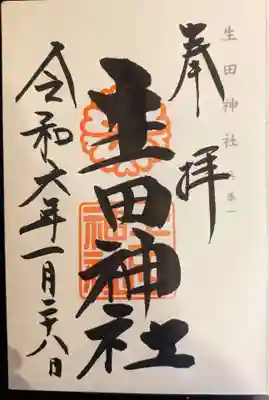 生田神社
奉拝
生田神社
令和六年一月二十八日